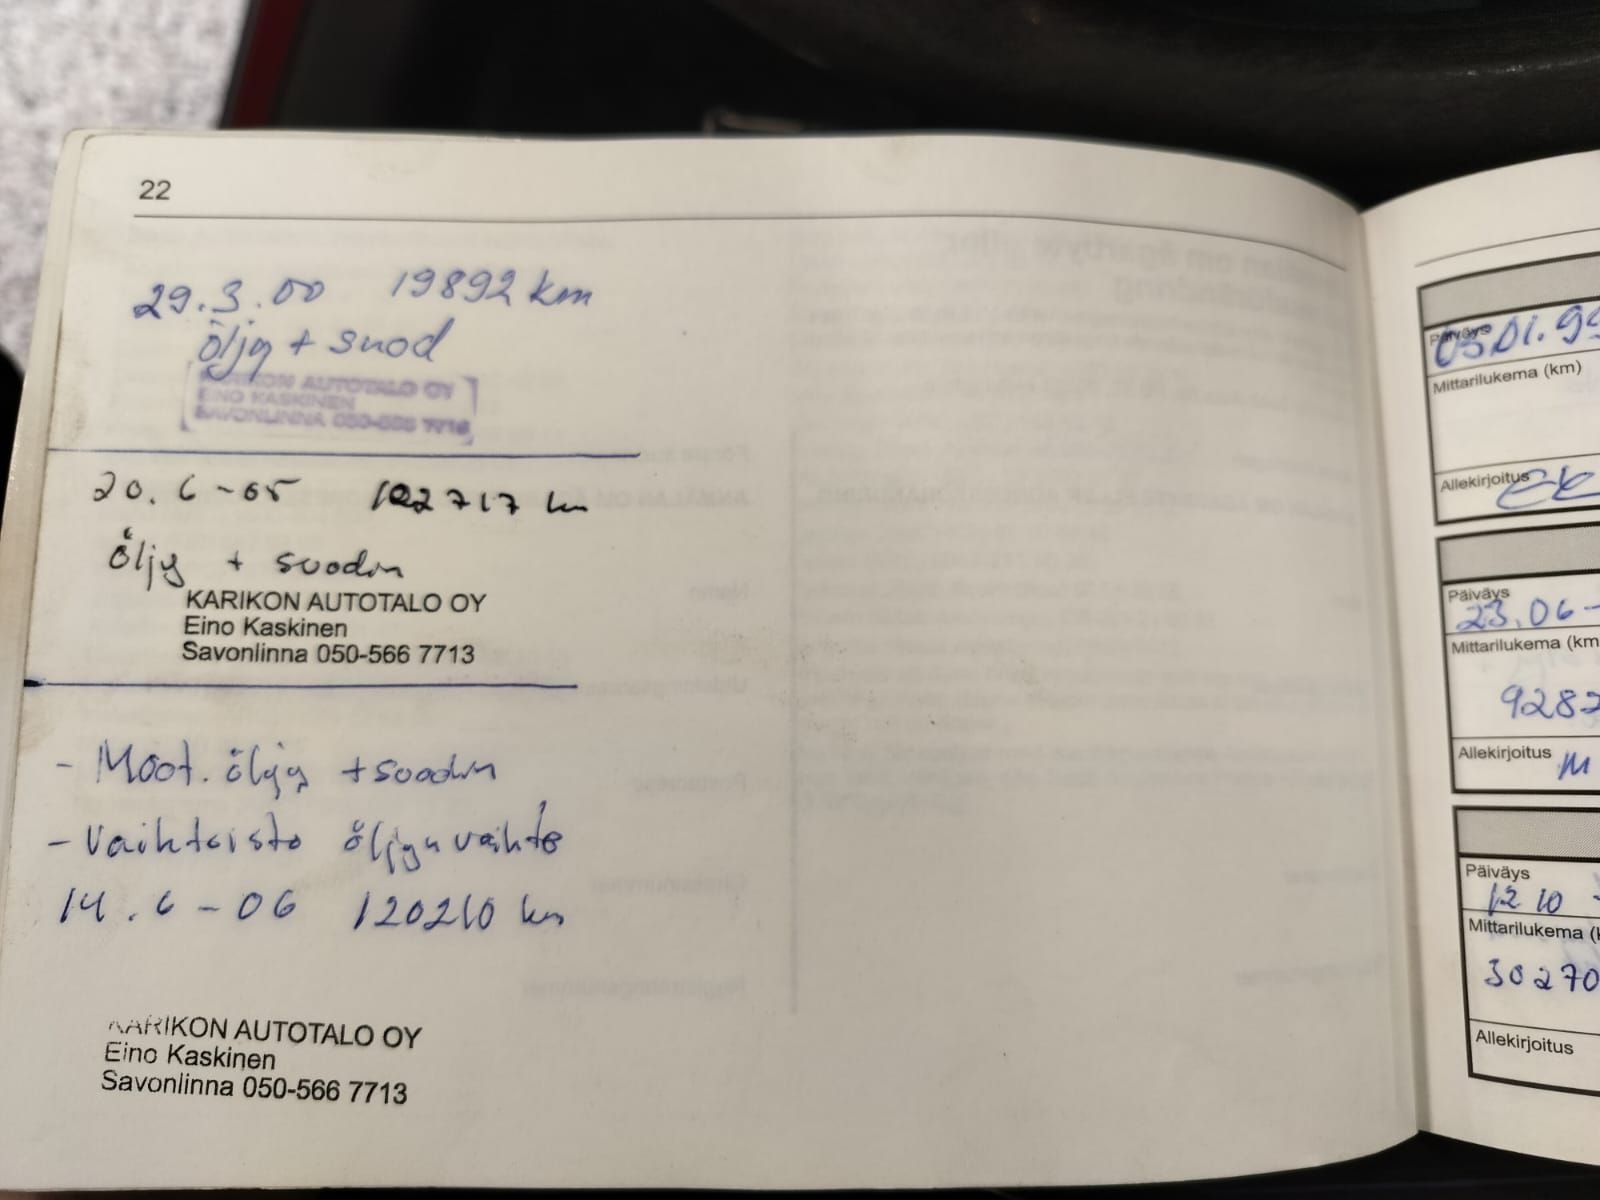 22
29.3.00 19892 km
öljy + suod
KARIKON AUTOTALO OY
EINO KASKINEN
SAVONLINNA 050-566 7713
20.6-05 102717 km
Öljy + suodin
KARIKON AUTOTALO OY
Eino Kaskinen
Savonlinna 050-566 7713
- Moot. öljy + suodin
- Vaihteisto öljyn vaihto
14.6-06 120210 km
KARIKON AUTOTALO OY
Eino Kaskinen
Savonlinna 050-566 7713
Päiväys
05.01.99
Mittarilukema (km)
Allekirjoitus
Päiväys
23.06-
Mittarilukema (km
9282
Allekirjoitus
Päiväys
12 10 -
Mittarilukema (k
30270
Allekirjoitus